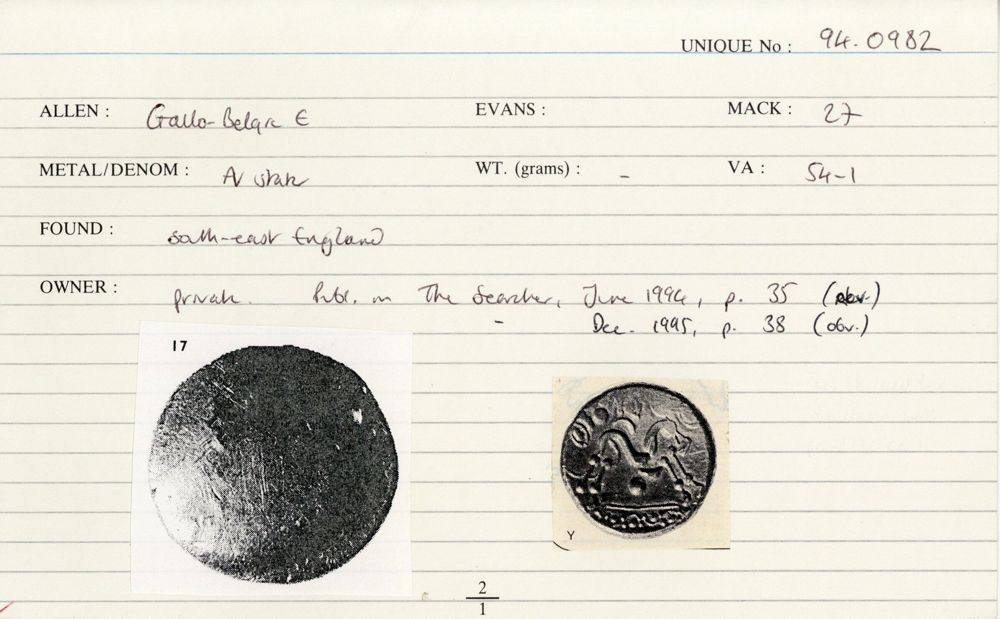 UNIQUE No : 94.0982
ALLEN : Gallo-Belgic E EVANS : MACK : 27
METAL/DENOM : AV stater WT. (grams) : – VA : 54-1
FOUND : south-east England
OWNER : private. Publ. in The Searcher, June 1994, p. 35 (rev.)
– Dec. 1995, p. 38 (obv.)
17
Y
2
1